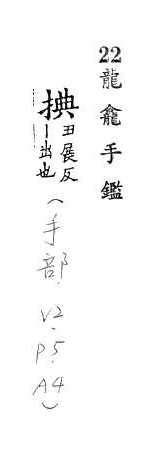 22龍龕手鑑
捵丑展反
—出也
(手部、V2、P5、A4)